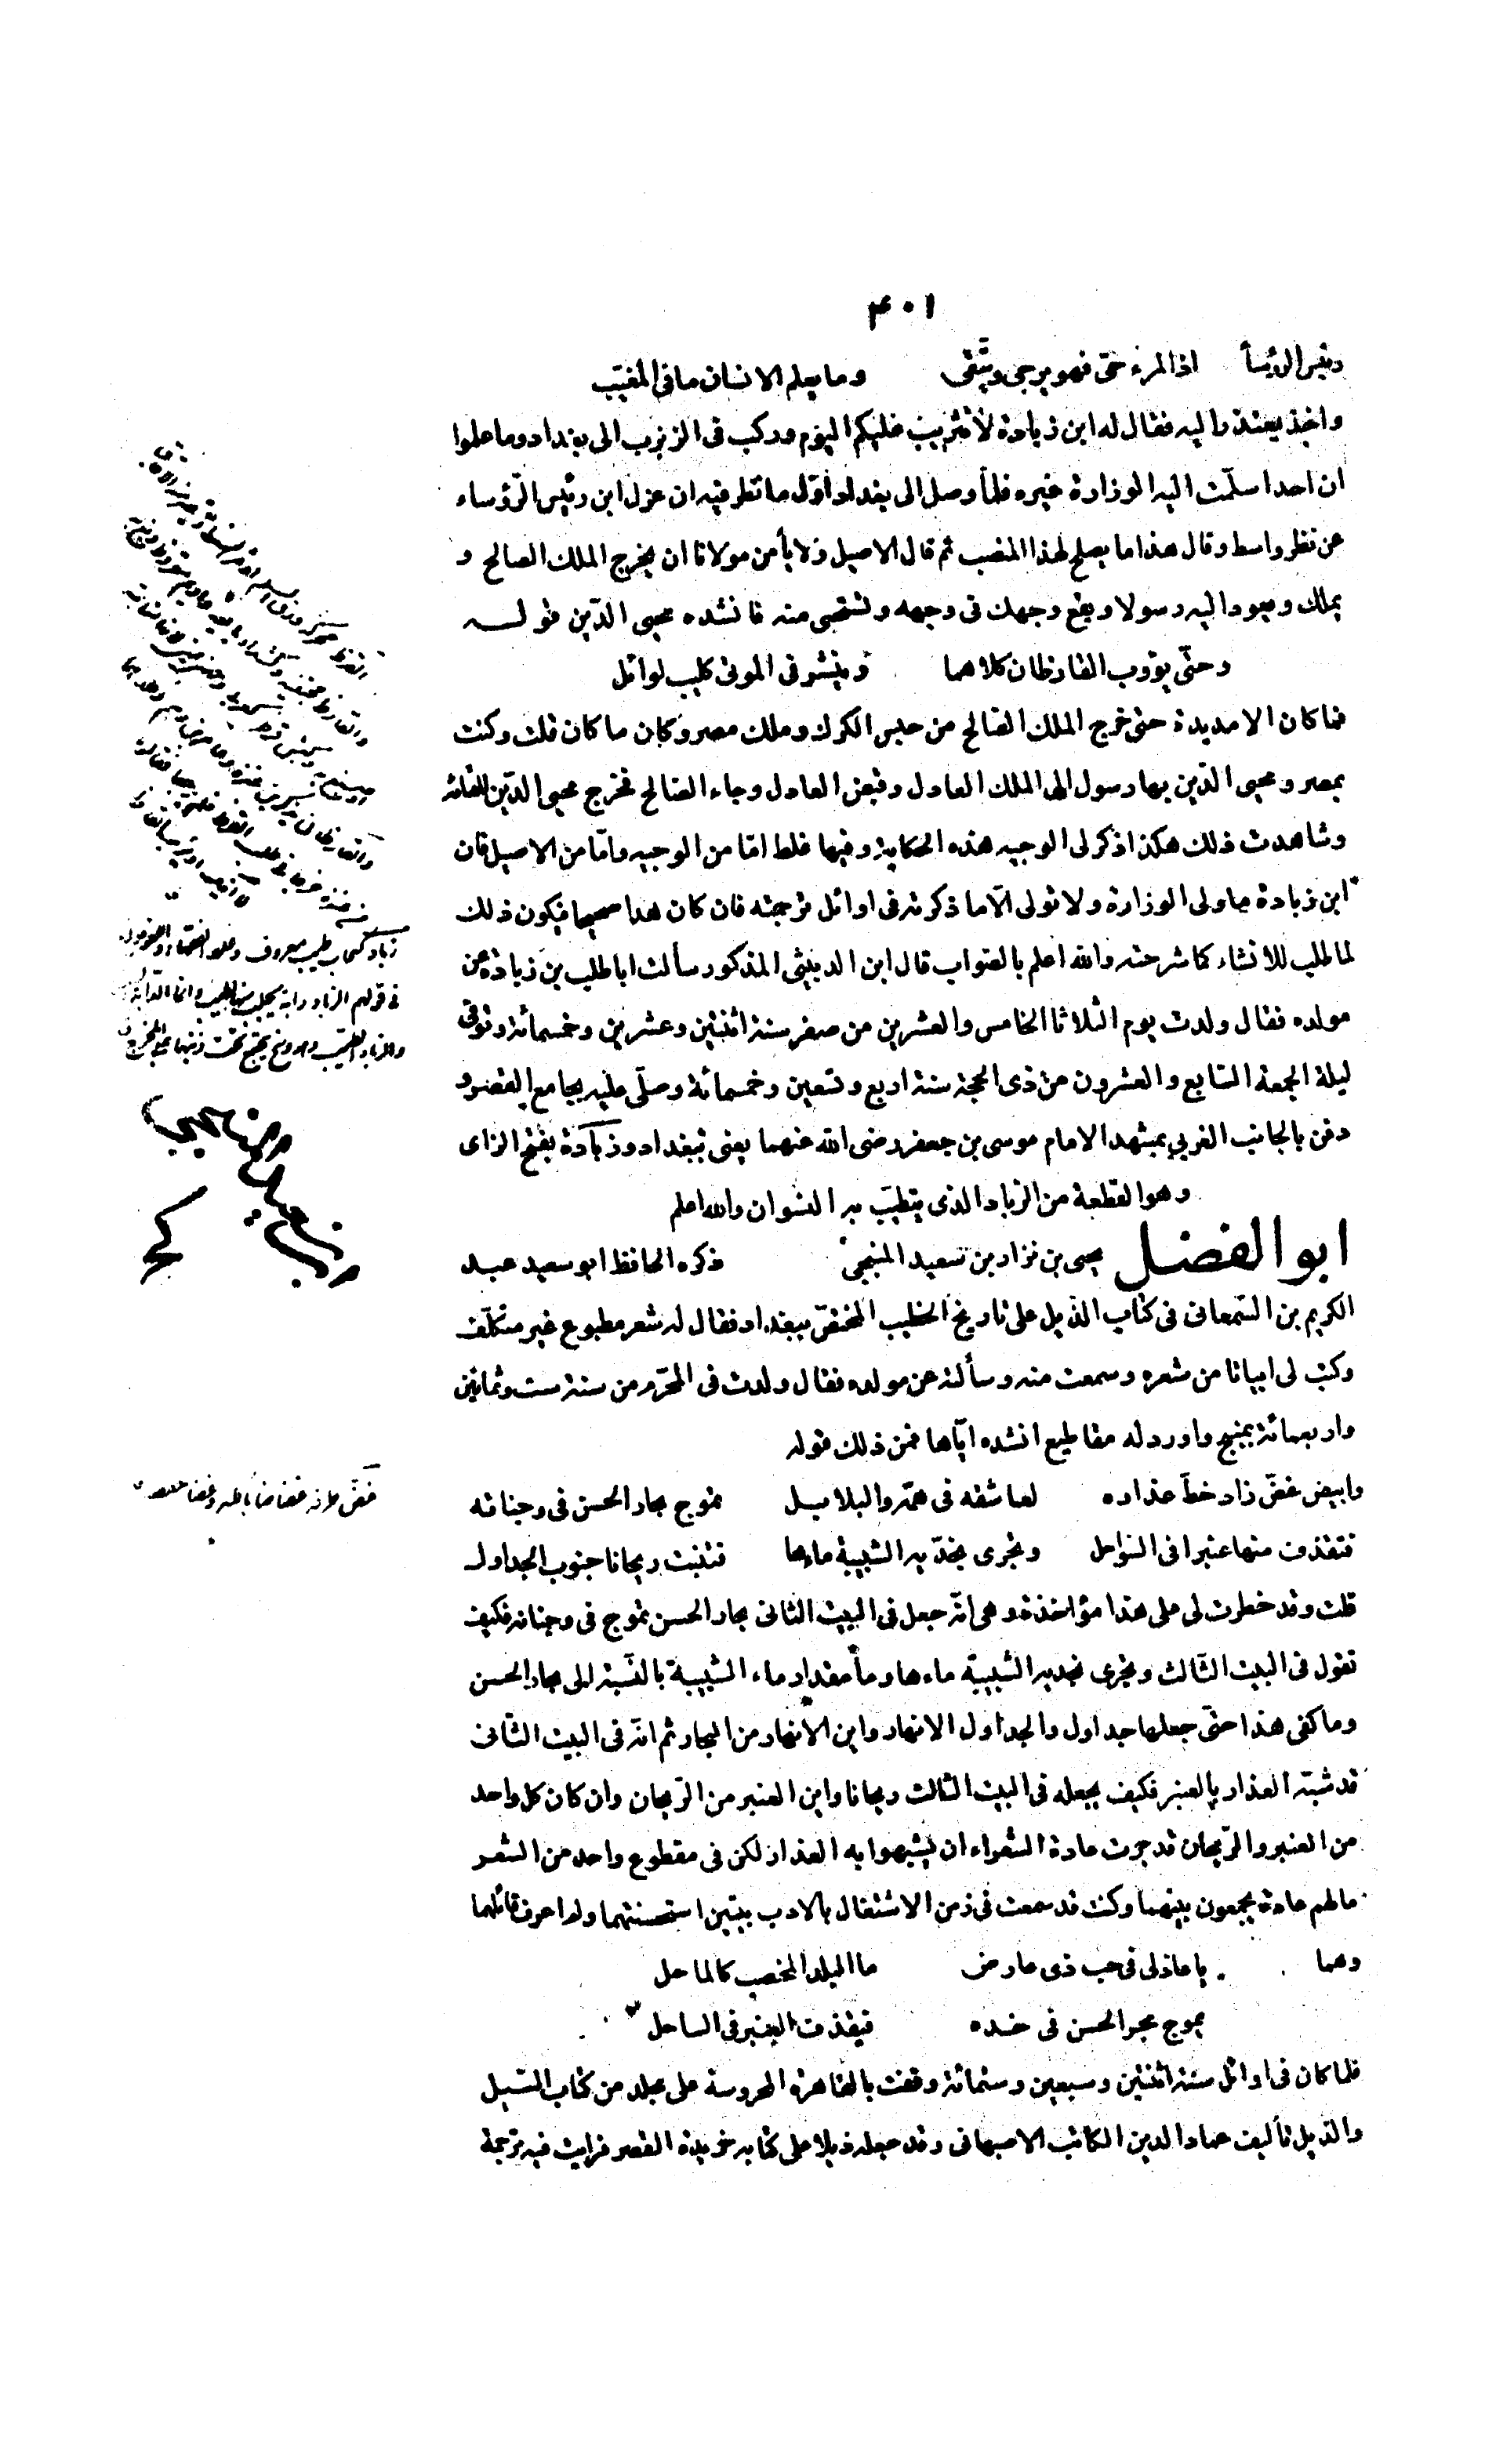 ۴۰۱
رئيس الرؤسأ اذا المرء حىّ فهو يرجى ويتّقى وما يعلم الانسان ما فى المغيّب
واخذ يعتذر اليه فقال له ابن زيادة لا تثريب عليكم اليوم وركب فى الزبزب الى بغداد وما علموا
ان احدا سلّمت اليه الوزارة غيره فلمأ وصل الى بغداد اوّل ما نظر فيه ان عزل ابن رئيس الرّؤساء
عن نظر واسط وقال هذا ما يصلح لهذا المنصب ثم قال الاصيل ولا يأمن مولانا ان يخرج الملك الصالح و
يملك ويعود اليه رسولا ويقع وجهك فى وجهه وتستحى منه فانشده محيى الدّين قوله
وحتّى يؤوب القارظان كلاهما وينشر فى الموتى كليب لوائل
فما كان الا مديدة حتى خرج الملك الصّالح من حبس الكرك وملك مصر وكان ما كان قلت وكنت
بمصر ومحيى الدّين بها رسول الى الملك العادل وقبض العادل وجاء الصّالح فخرج محيى الدّين للقائه
وشاهدت ذلك هكذا ذكر لى الوجيه هذه الحكاية وفيها غلط امّا من الوجيه وامّا من الاصيل فان
ابن زيادة ما ولى الوزارة ولا تولى الّا ما ذكرته فى اوائل ترجمته فان كان هذا صحيحا فيكون ذلك
لما طلب للانشاء كما شرحته والله اعلم بالصّواب قال ابن الدبيثى المذكور سألت ابا طالب بن زيادة عن
مولده فقال ولدت يوم الثلاثا الخامس والعشرين من صفر سنة اثنتين وعشرين وخمسمائة وتوفى
ليلة الجمعة السّابع والعشرون من ذى الحجّة سنة اربع وتسعين وخمسمائة وصلّى عليه بجامع القصر و
دفن بالجانب الغربي بمشهد الامام موسى بن جعفر رضى الله عنهما يعنى ببغداد وزبادة بفتح الزاى
وهو القطعة من الزباد الذى يتطيّب به النسوان والله اعلم
ابو الفضل يحيى بن نزار بن سعيد المنبجى ذكره الحافظ ابو سعيد عبد
الكريم بن السّمعانى فى كتاب الذّيل على تاريخ الخطيب المختصّ ببغداد فقال له شعر مطبوع غير متكلّف
وكتب لى ابياتا من شعره وسمعت منه وسألته عن مولده فقال ولدت فى المحرّم من سنة ست وثمانين
واربعمائة بمنبج واورد له مقاطيع انشده ايّاها فمن ذلك قوله
وابيض غضّ زاد خطّ عذاره لعاشقه فى همّه والبلابل تموج بحار الحسن فى وجناته
فتقذف منها عنبرا فى السّواحل وتجرى بخدّيه الشبيبة ماءها فتنبت ريحانا جنوب الجداول
قلت وقد خطرت لى على هذا مؤاخذة وهى انّه جعل فى البيت الثانى بحار الحسن تموج فى وجناته فكيف
تقول فى البيت الثّالث وتجرى بخديه الشّبيبة ماءها وما مقدار ماء الشبيبة بالنّسبة الى بحار الحسن
وما كفى هذا حتّى جعلها جداول والجداول الانهار واين الانهار من البحار ثم انّه فى البيت الثّانى
قد شبّه العذار بالعنبر فكيف يجعله فى البيت الثالث ريحانا واين العنبر من الرّيحان وان كان كل واحد
من العنبر والرّيحان قد جرت عادة الشعراء ان يشبهوا به العذار لكن فى مقطوع واحد من الشعر
ما لهم عادة يجمعون بينهما وكنت قد سمعت فى زمن الاشتغال بالادب بيتين استحسنتهما ولم اعرف قائلهما
وهما يا عاذلى فى حب ذى عارض ما البلد المخصب كالماحل
يموج بحر الحسن فى خده فيقذف العنبر فى الساحل
فلما كان فى اوائل سنة اثنتين وسبعين وستمائة وقفت بالقاهرة المحروسة على مجلد من كتاب السّيل
والذيل تأليف عماد الدين الكاتب الاصبهانى وقد جعله ذيلا على كتابه خريدة القصر فرايت فيه ترجمة
زباد كسحاب طيب معروف
فى قولهم الزباد دابة يجلب منها الطيب وانما الدّابة
والزباد الطيب وهو وسخ يجتمع تحت ذنبها على المخرج